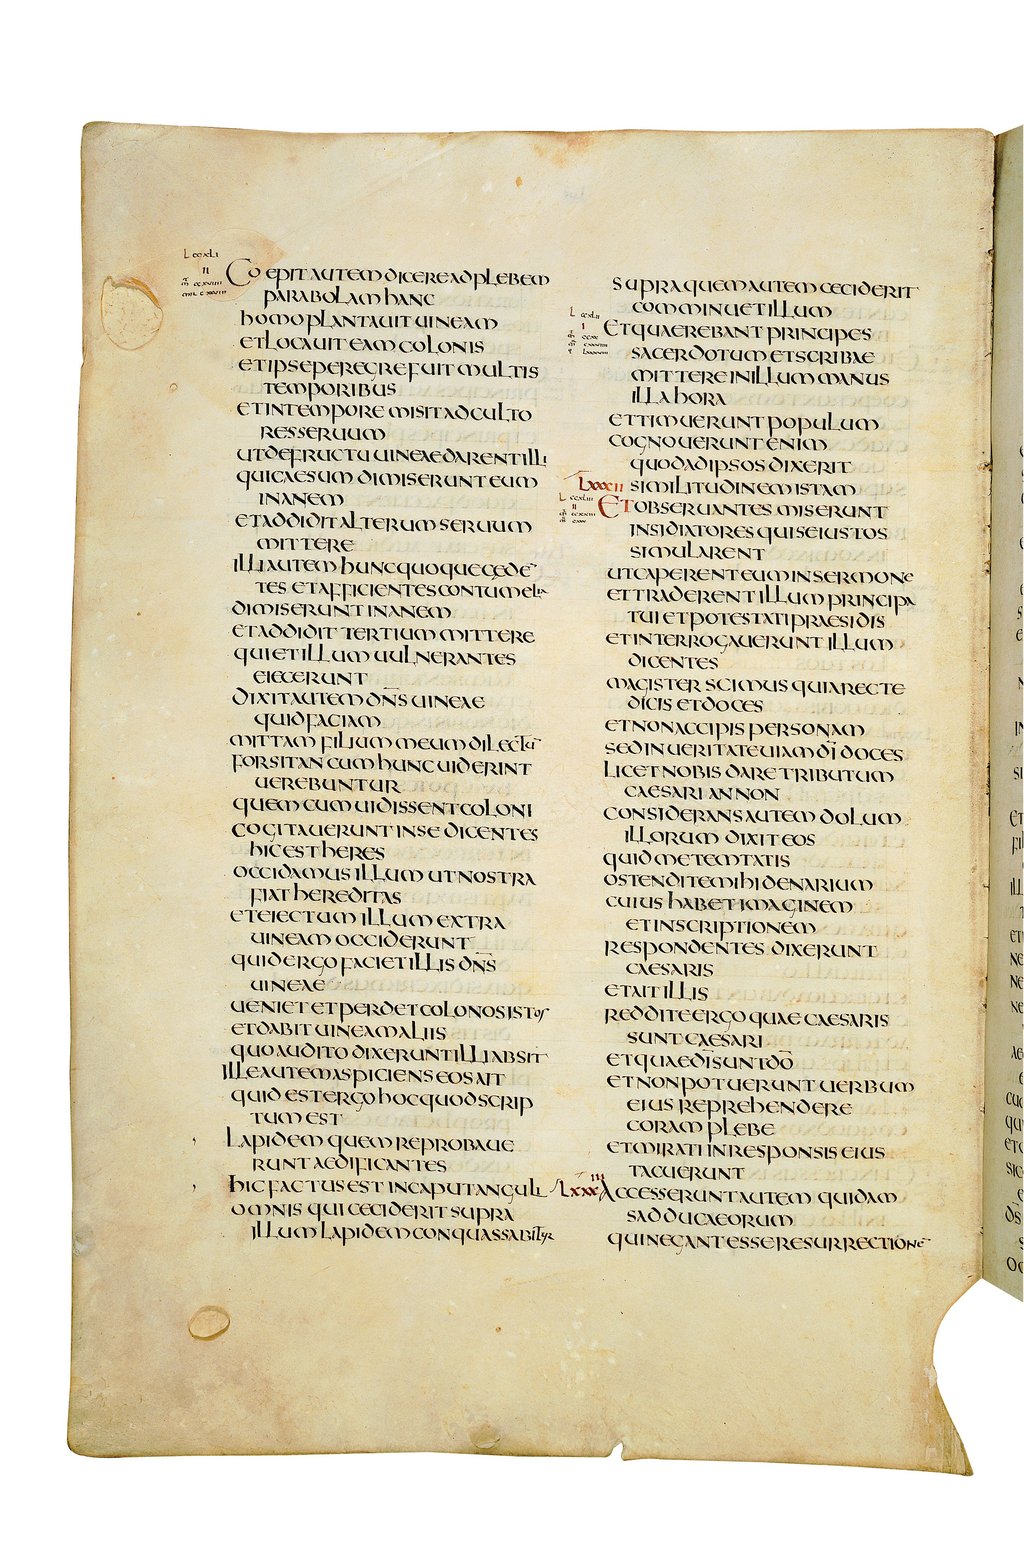 L ccxli
II
COEPIT AUTEM DICERE AD PLEBEM
PARABOLAM HANC
HOMO PLANTAUIT UINEAM
ET LOCAUIT EAM COLONIS
ET IPSE PEREGRE FUIT MULTIS
TEMPORIBUS
ET IN TEMPORE MISIT AD CULTO
RES SERUUM
UT DE FRUCTU UINEAE DARENT ILLI
QUI CAESUM DIMISERUNT EUM
INANEM
ET ADDIDIT ALTERUM SERUUM
MITTERE
ILLI AUTEM HUNC QUOQUE CĘDE͞
TES ET AFFICIENTES CONTUMELIA
DIMISERUNT INANEM
ET ADDIDIT TERTIUM MITTERE
QUI ET ILLUM UULNERANTES
EIECERUNT
DIXIT AUTEM DN͞S UINEAE
QUID FACIAM
MITTAM FILIUM MEUM DILECTU͞
FORSITAN CUM HUNC UIDERINT
UEREBUNTUR
QUEM CUM UIDISSENT COLONI
COGITAUERUNT IN SE DICENTES
HIC EST HERES
OCCIDAMUS ILLUM UT NOSTRA
FIAT HEREDITAS
ET EIECTUM ILLUM EXTRA
UINEAM OCCIDERUNT
QUID ERGO FACIET ILLIS DN͞S
UINEAE
UENIET ET PERDET COLONOS ISTOS
ET DABIT UINEAM ALIIS
QUO AUDITO DIXERUNT ILLI ABSIT
ILLE AUTEM ASPICIENS EOS AIT
QUID EST ERGO HOC QUOD SCRIP
TUM EST
LAPIDEM QUEM REPROBAUE
RUNT AEDIFICANTES
HIC FACTUS EST IN CAPUT ANGULI
OMNIS QUI CECIDERIT SUPRA
ILLUM LAPIDEM CONQUASSABITUR
SUPRA QUEM AUTEM CECIDERIT
COMMINUET ILLUM
L ccxlii
I
ET QUAEREBANT PRINCIPES
SACERDOTUM ET SCRIBAE
MITTERE IN ILLUM MANUS
ILLA HORA
ET TIMUERUNT POPULUM
COGNOUERUNT ENIM
QUOD AD IPSOS DIXERIT
LXXXII SIMILITUDINEM ISTAM
L ccxliii
II
ET OBSERUANTES MISERUNT
INSIDIATORES QUI SE IUSTOS
SIMULARENT
UT CAPERENT EUM IN SERMONE
ET TRADERENT ILLUM PRINCIPA
TUI ET POTESTATI PRAESIDIS
ET INTERROGAUERUNT ILLUM
DICENTES
MAGISTER SCIMUS QUIA RECTE
DICIS ET DOCES
ET NON ACCIPIS PERSONAM
SED IN UERITATE UIAM DI͞ DOCES
LICET NOBIS DARE TRIBUTUM
CAESARI AN NON
CONSIDERANS AUTEM DOLUM
ILLORUM DIXIT EOS
QUID ME TEMTATIS
OSTENDITE MIHI DENARIUM
CUIUS HABET IMAGINEM
ET INSCRIPTIONEM
RESPONDENTES DIXERUNT
CAESARIS
ET AIT ILLIS
REDDITE ERGO QUAE CAESARIS
SUNT CAESARI
ET QUAE DI͞ SUNT DO͞
ET NON POTUERUNT UERBUM
EIUS REPREHENDERE
CORAM PLEBE
ET MIRATI IN RESPONSIS EIUS
TACUERUNT
LXXXIII ACCESSERUNT AUTEM QUIDAM
SADDUCAEORUM
QUI NEGANT ESSE RESURRECTIONE͞